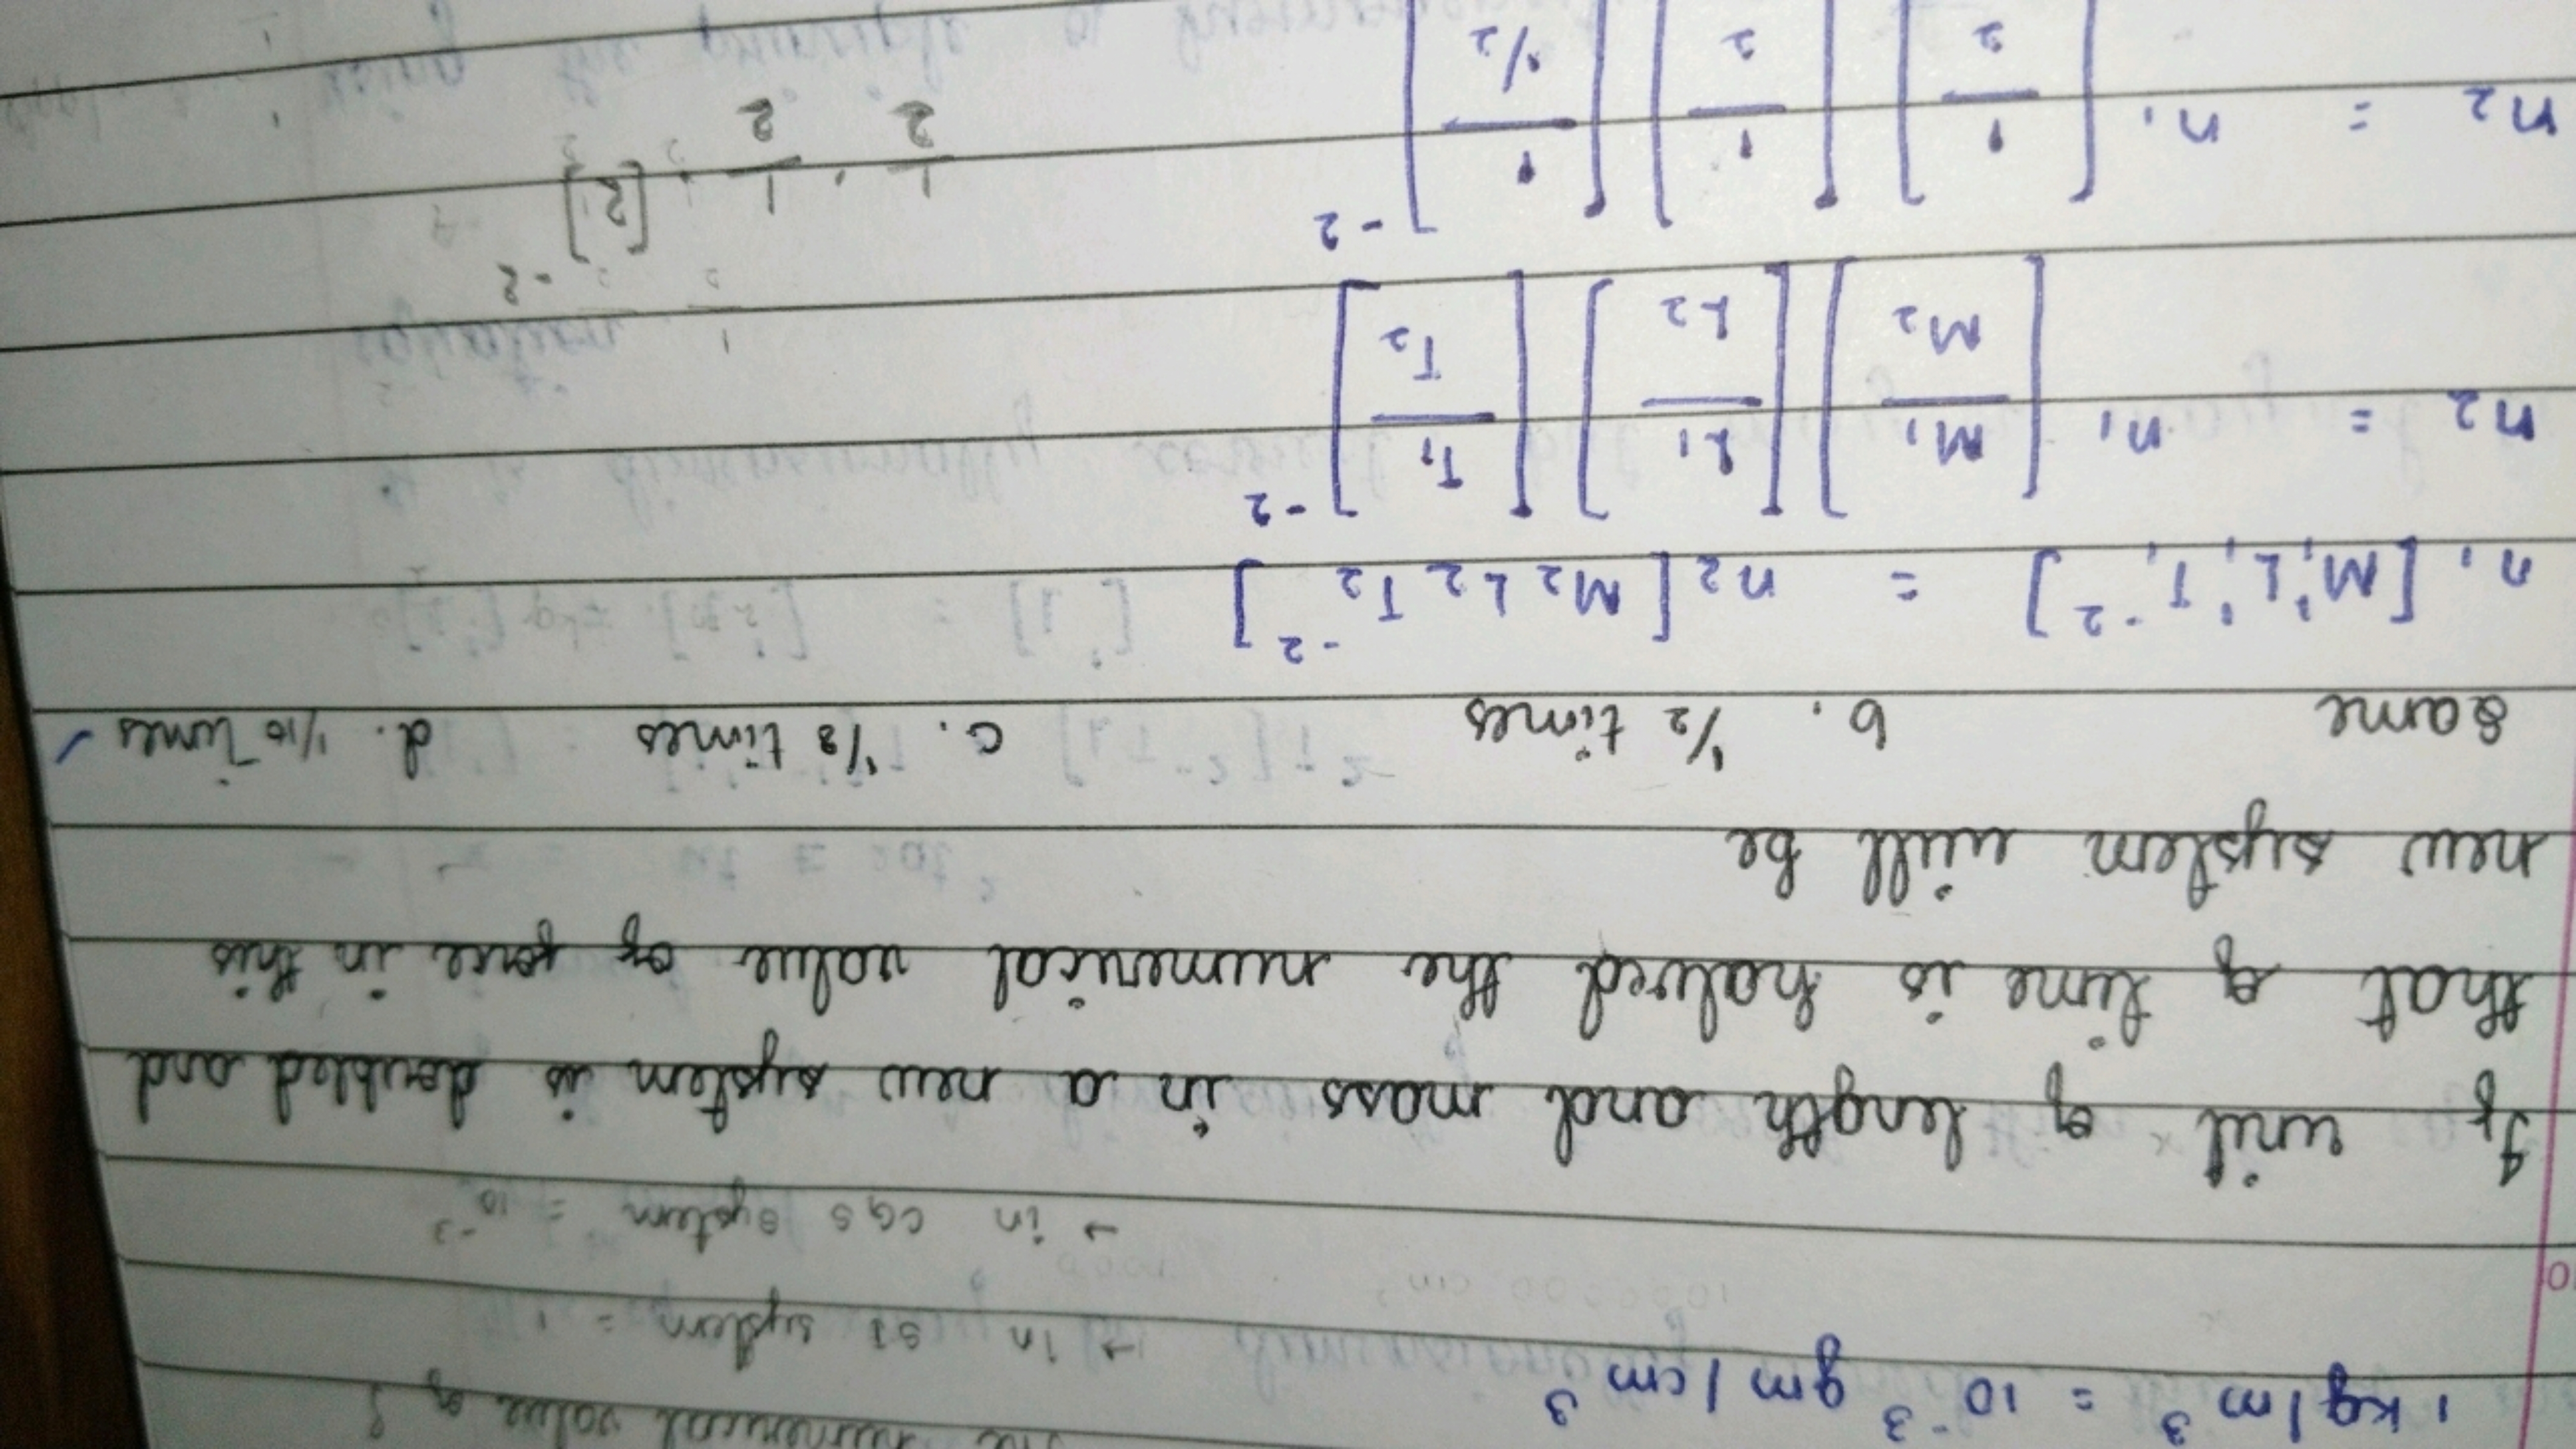 1 kg/m³ = 10⁻³ gm/cm³
numerical value of
→ in SI system = 1
→ in CGS system = 10⁻³
If unit of length and mass in a new system is doubled and
that of time is halved the numerical value of force in this
new system will be
same b. 1/2 times c. 1/8 times d. 1/16 times ✓
n₁ [M₁¹L₁¹T₁⁻²] = n₂ [M₂L₂T₂⁻²]
n₂ = n₁ [M₁/M₂] [L₁/L₂] [T₁/T₂]⁻²
n₂ = n₁ [1/2] [1/2] [1/1/2]⁻²
1/2 . 1/2 . [2]⁻²